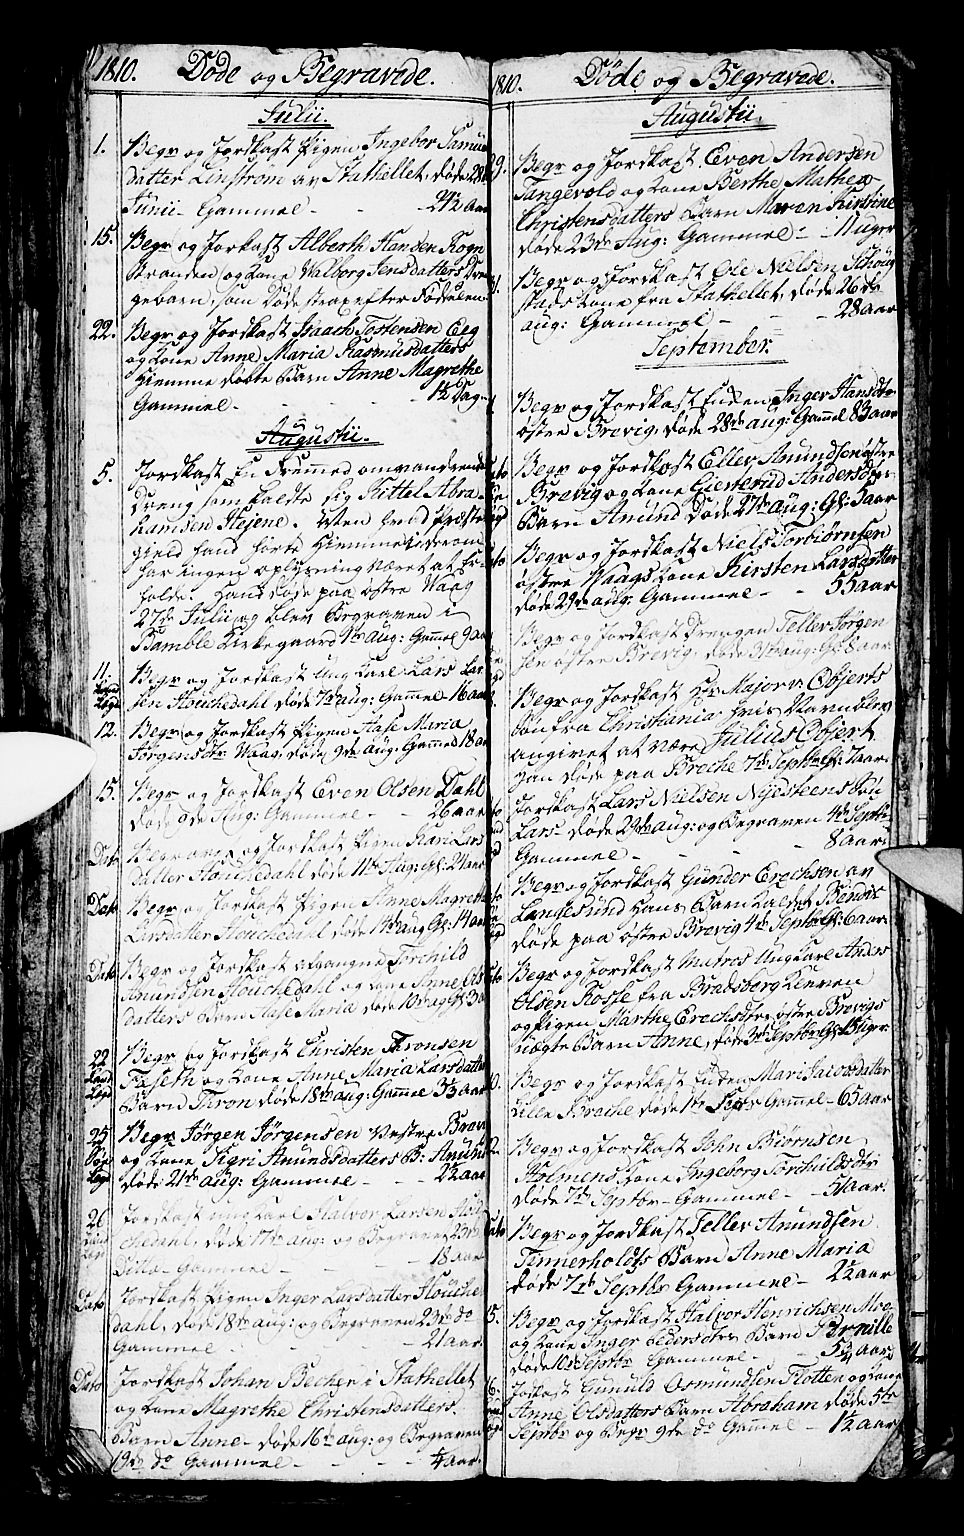 1810. Døde og Begravede.
Julii.
1. Begr og Jordkast Pigen Ingebor Samuels
datter Linstrom av Stathellet, døde 28
Junii Gammel - - 24½ aar
15. Begr og Jorkast Alberth Hansen Kogn
stranden og Kone Valborg Jensdatters Dren
gebarn, som døde strax efter Fødselen
22. Begr og Jordkast Isaach Tostensen Eeg
og Kone Anne Maria Rasmusdatters
Hiemme døbte Barn Anne Magrethe
Gammel - - - 1½ Dag
Augustii.
5. Jordkast En Fremmed omvandrende
Dreng som kaldte sig Kittel Abra
hamsen Hejene. Men hvad Præste
gield hand hørte Hiemme i, derom
har ingen oplysning været at er-
holde. Hand døde paa østre Waag
27de Julii og blev Begraven i
Bamble Kirkegaard 1ste aug: Gammel 9 aar
11. Begr og Jordkast Ung Karl Lars Lar
sen Houchedahl døde 7de aug: Gammel 16 aar
12. Begr og Jordkast Pigen Aase Maria
Jørgensdtr Waag, døde 9de aug: Gammel 18 aar
15. Begr og Jordkast Even Olsen Dahl
døde 9de Aug: Gammel - - 26 aar
Dato Begraven og Jordkast Pigen Kari Lars
datter Houchedahl døde 11te Aug: Gl: 21 aar
Dato Begr og Jordkast Pigen Anne Magrethe
Larsdatter Houchedahl døde 14de aug Gl: 14 aar
Dato Begr og Jordkast afgangne Torchild
Amundsen Houchedahl og Kone Anne Ols
datters Barn Aase Maria, døde 10de aug Gl: 3 aar
22. Begr og Jordkast Christen Thronsen
Fuseth og Kone Anne Maria Larsdatters
Barn Thron døde 18de aug: Gammel 3½ aar
25 Begr Jørgen Jørgensen Vestre Brevi
og Kone Sigri Amundsdatters B: Amund
døde 21de aug: Gammel - - 2½ aar
26 Jordkast ung Karl Halvor Larsen Hou
chedahl, døde 17de aug: og Begraven 23de
Ditto - Gammel - - 18 aar.
Dato Jordkast Pigen Inger Larsdatter Houche
dahl, døde 18de aug: og Begraven 23de do
Gammel - - - 21 aar.
Dato Jordkast Johan Becher i Stathellet
og Kone Magrethe Christensdatters
Barn Anne - døde 16de aug: og Begraven
19de do Gammel - - ¼ aar.
1810. Døde og Begravede.
Augustii.
29. Begr og Jordkast Even Andersen
Tangevold og Kone Berthe Mathea
Christensdatters Barn Maren Kirstine
døde 23de Aug: Gammel - - 11 uger
Begr og Jordkast Ole Nielsen Schoug
stads Kone fra Stathellet, døde 26de
aug: Gammel - - - 28 aar
September.
Begr og Jordkast Enken Inger Hansdtr
østre Brevig, døde 28de aug: Gammel 83 aar
Begr og Jordkast Ellev Amundsen østre
Brevig og Kone Giertrud Andersdtrs
Barn Amund døde 27de aug: Gl: 3 aar
Begr og Jordkast Niels Torbiørnsen
østre Waags Kone Kirsten Larsdatter
døde 29de aug: Gammel - - 55 aar
Begr og Jordkast Drengen Tellev Jørgen
sen østre Brevig, døde 31te aug: Gl: 8 aar
Begr og Jordkast Hr Major v. Objerts
Søn fra Christiania, hvis Navn blev
angivet at være Julius Objert
han døde paa Breche 7de Septbr Gl: 7 aar
Jordkast Lars Nielsen Nysteens Søn
Lars døde 29de aug: og Begraven 4de Septbr
Gammel - - - - 8 aar
Begr og Jordkast Gunder Erechsen av
Langesund Hans Barn kaldet Bendix
døde paa østre Brevig 4de Septbr Gl: 6 aar
Begr og Jordkast Matros Ung Karl Anders
Olsen Kosse fra Bradsborg
og Pigen Marthe Erechsdtrs østre Brevigs
uægte Barn Anne, døde 3de Septbr Gl: 15 uger
Begr og Jordkast Enken Mari Jacobsdatter
Lille Brache døde 1te Septbr Gammel - 65 aar
Begr og Jordkast John Biørnsen
Kone Ingeborg Torchildsdtr
døde 7de Septbr - Gammel - 51 aar.
Dato Begr og Jordkast Tellev Amundsen
Tinnerholdts Barn Anne Maria
døde 7de Septbr Gammel - 2½ aar
15. Begr og Jordkast Halvor Henrichsen Moe
og Kone Inger Pedersdtrs Barn Pernille
døde 10de Septbr Gammel - - 5¾ aar
16. Jordkast Gunuld Osmundsen Flotten og Kone
Anne Olsdatters Barn Abraham døde 5te
Septbr og Begr 9de do Gammel - 1½ aar